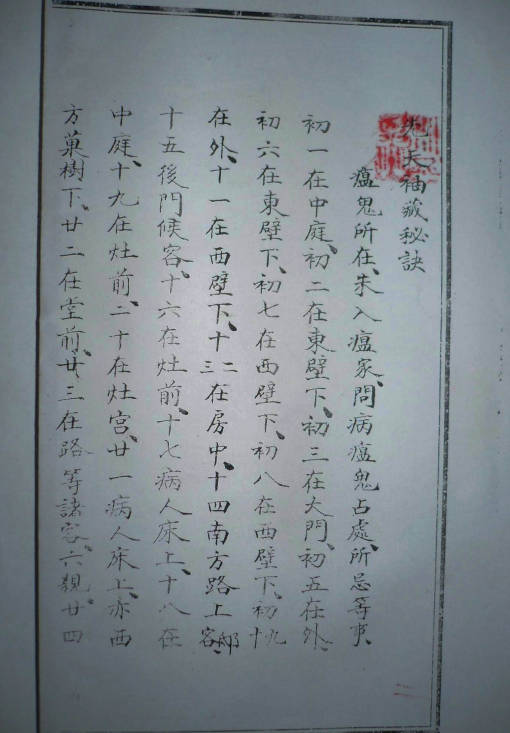 先天袖藏秘訣
瘟鬼所在、未入瘟家、問病瘟鬼占處、所忌等事、
初一在中庭、初二在東壁下、初三在大門、初五在外、
初六在東壁下、初七在西壁下、初八在西壁下、初九
在外、十一在西壁下、十二三在房中、十四南方路上
十五後門候客、十六在灶前、十七病人床上、十八在
中庭、十九在灶前、二十在灶宫、廿一病人床上、亦西
方菓樹下、廿二在堂前、廿三在路等諸客、六親、廿四